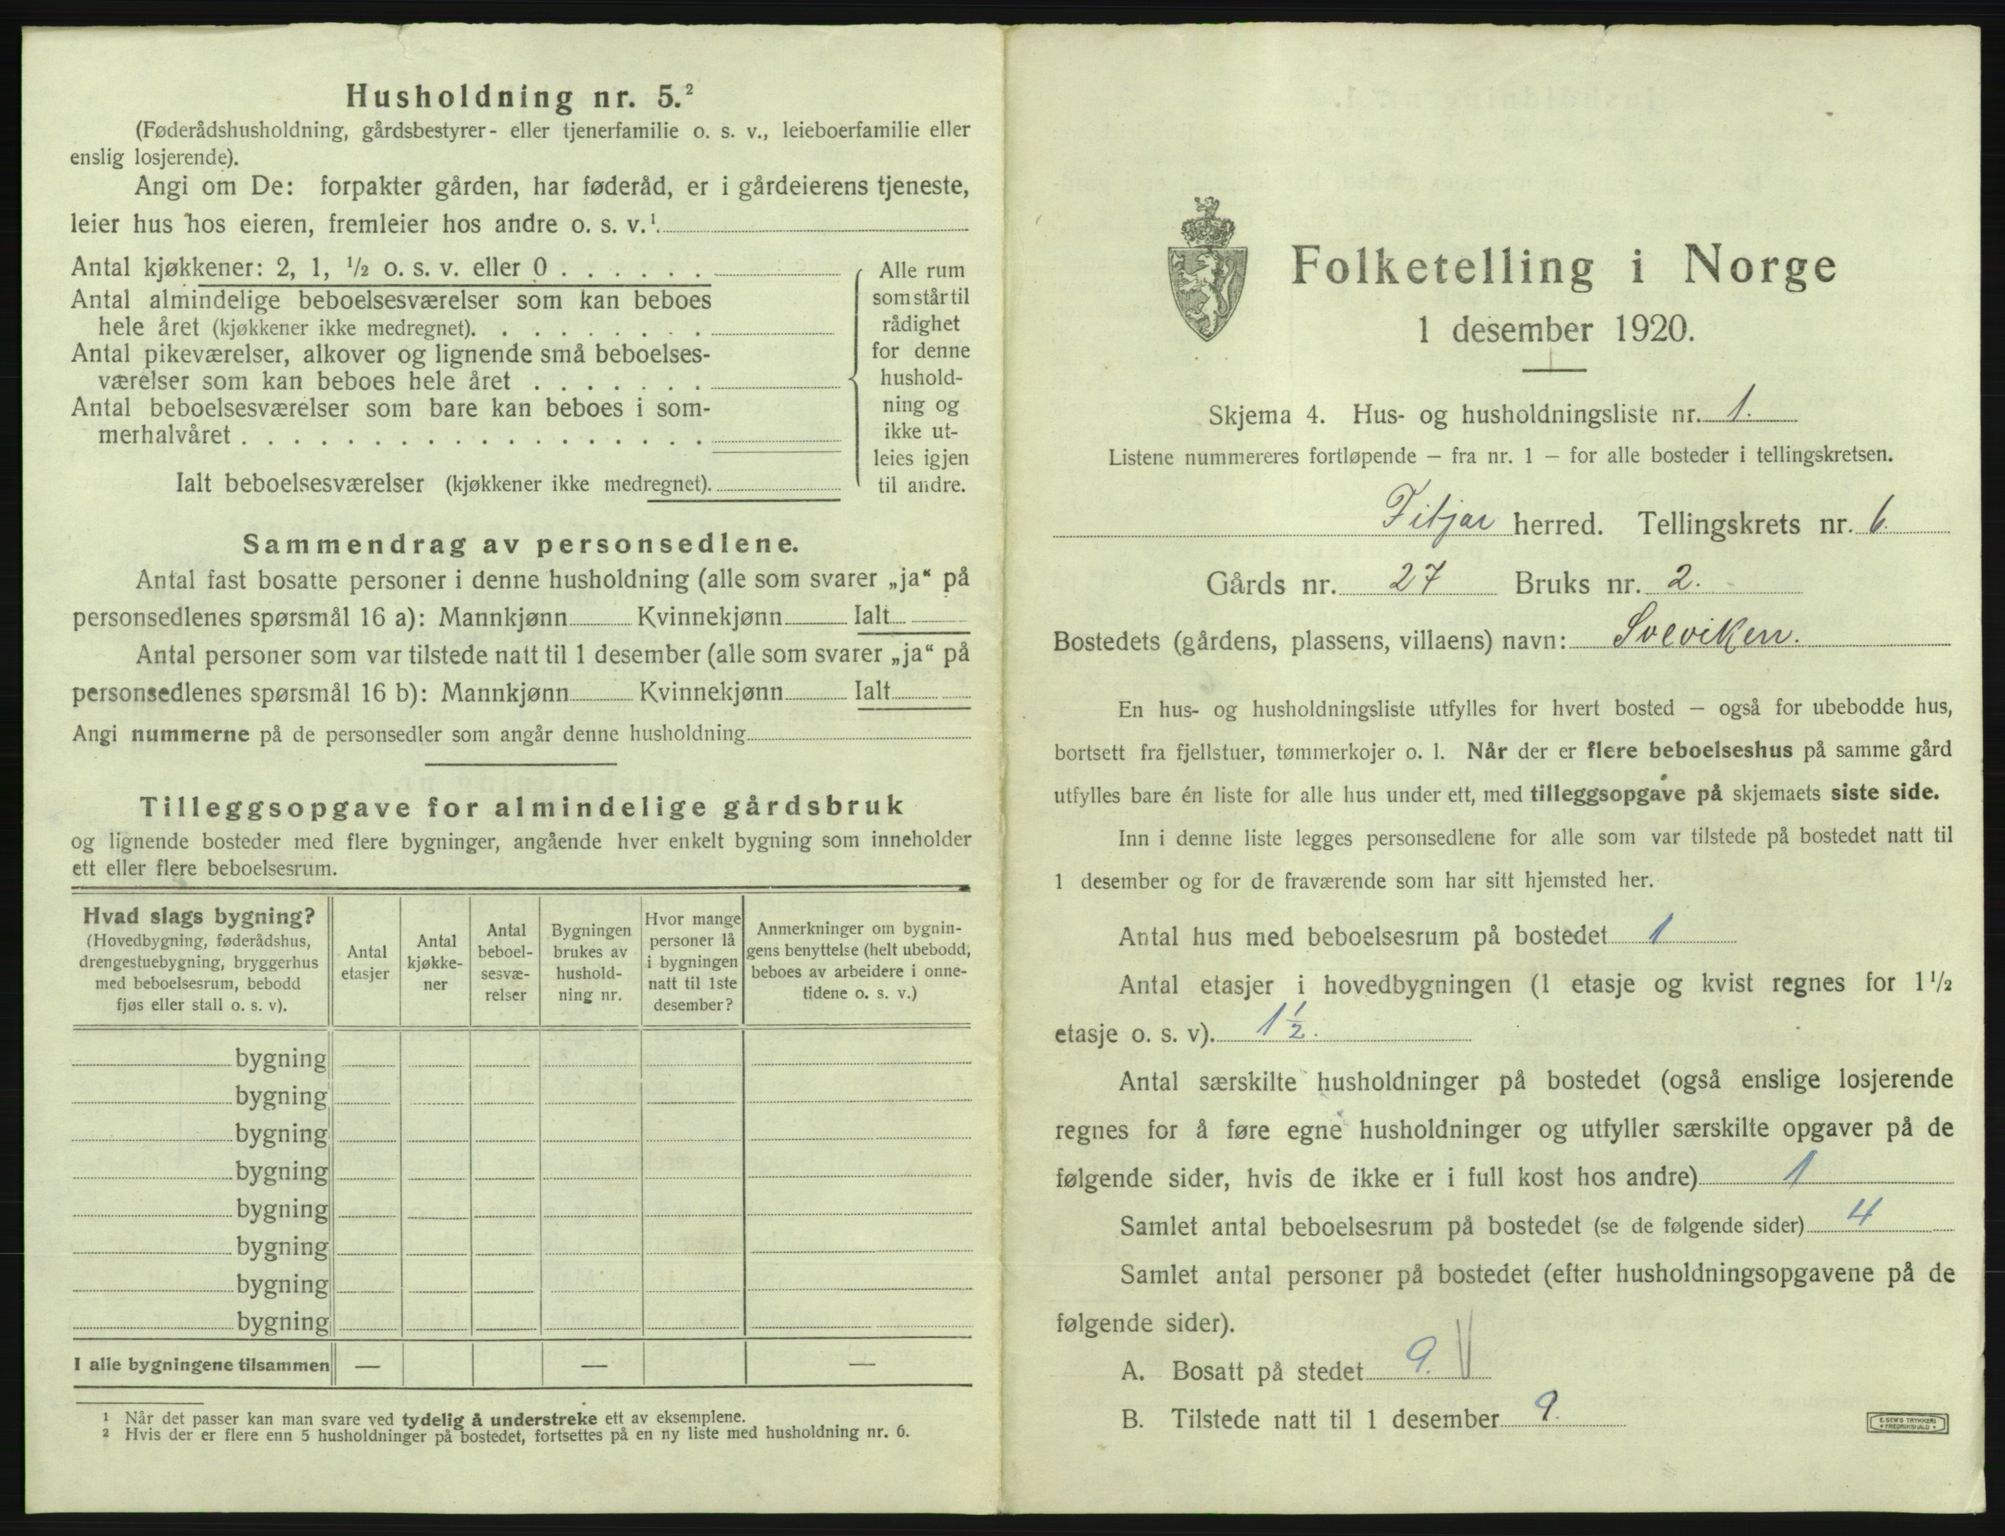 Husholdning nr. 5.²
(Føderådshusholdning, gårdsbestyrer- eller tjenerfamilie o. s. v., leieboerfamilie eller
enslig losjerende).
Angi om De: forpakter gården, har føderåd, er i gårdeierens tjeneste,
leier hus hos eieren, fremleier hos andre o. s. v.¹
Antal kjøkkener: 2, 1, ½ o. s. v. eller 0
Antal almindelige beboelsesværelser som kan beboes
hele året (kjøkkener ikke medregnet).
Antal pikeværelser, alkover og lignende små beboelses-
værelser som kan beboes hele året
Antal beboelsesværelser som bare kan beboes i som-
merhalvåret
Ialt beboelsesværelser (kjøkkener ikke medregnet).
Alle rum
som står til
rådighet
for denne
hushold-
ning og
ikke ut-
leies igjen
til andre.
Sammendrag av personsedlene.
Antal fast bosatte personer i denne husholdning (alle som svarer „ja“ på
personsedlenes spørsmål 16 a): Mannkjønn Kvinnekjønn Ialt
Antal personer som var tilstede natt til 1 desember (alle som svarer „ja“ på
personsedlenes spørsmål 16 b): Mannkjønn Kvinnekjønn Ialt
Angi nummerne på de personsedler som angår denne husholdning
Tilleggsopgave for almindelige gårdsbruk
og lignende bosteder med flere bygninger, angående hver enkelt bygning som inneholder
ett eller flere beboelsesrum.
Hvad slags bygning?
(Hovedbygning, føderådshus,
drengestuebygning, bryggerhus
med beboelsesrum, bebodd
fjøs eller stall o. s. v).
Antal
etasjer
Antal
kjøkke-
ner
Antal
beboel-
sesvæ-
relser
Bygningen
brukes av
hushold-
ning nr.
Hvor mange
personer lå
i bygningen
natt til 1ste
desember?
Anmerkninger om bygnin-
gens benyttelse (helt ubebodd,
beboes av arbeidere i onne-
tidene o. s. v.)
bygning
bygning
bygning
bygning
bygning
bygning
bygning
bygning
I alle bygningene tilsammen — — —
¹ Når det passer kan man svare ved tydelig å understreke ett av eksemplene.
² Hvis der er flere enn 5 husholdninger på bostedet, fortsettes på en ny liste med husholdning nr. 6.
Folketelling i Norge
1 desember 1920.
Skjema 4. Hus- og husholdningsliste nr. 1.
Listene nummereres fortløpende — fra nr. 1 — for alle bosteder i tellingskretsen.
Fitjar herred. Tellingskrets nr. 6.
Gårds nr. 27 Bruks nr. 2.
Bostedets (gårdens, plassens, villaens) navn: Sveviken.
En hus- og husholdningsliste utfylles for hvert bosted — også for ubebodde hus,
bortsett fra fjellstuer, tømmerkojer o. l. Når der er flere beboelseshus på samme gård
utfylles bare én liste for alle hus under ett, med tilleggsopgave på skjemaets siste side.
Inn i denne liste legges personsedlene for alle som var tilstede på bostedet natt til
1 desember og for de fraværende som har sitt hjemsted her.
Antal hus med beboelsesrum på bostedet 1
Antal etasjer i hovedbygningen (1 etasje og kvist regnes for 1½
etasje o. s. v). 1½.
Antal særskilte husholdninger på bostedet (også enslige losjerende
regnes for å føre egne husholdninger og utfyller særskilte opgaver på de
følgende sider, hvis de ikke er i full kost hos andre) 1
Samlet antal beboelsesrum på bostedet (se de følgende sider) 4
Samlet antal personer på bostedet (efter husholdningsopgavene på de
følgende sider).
A. Bosatt på stedet 9. V
B. Tilstede natt til 1 desember 9.
E. SEM'S TRYKKERI
FREDRIKSHALD